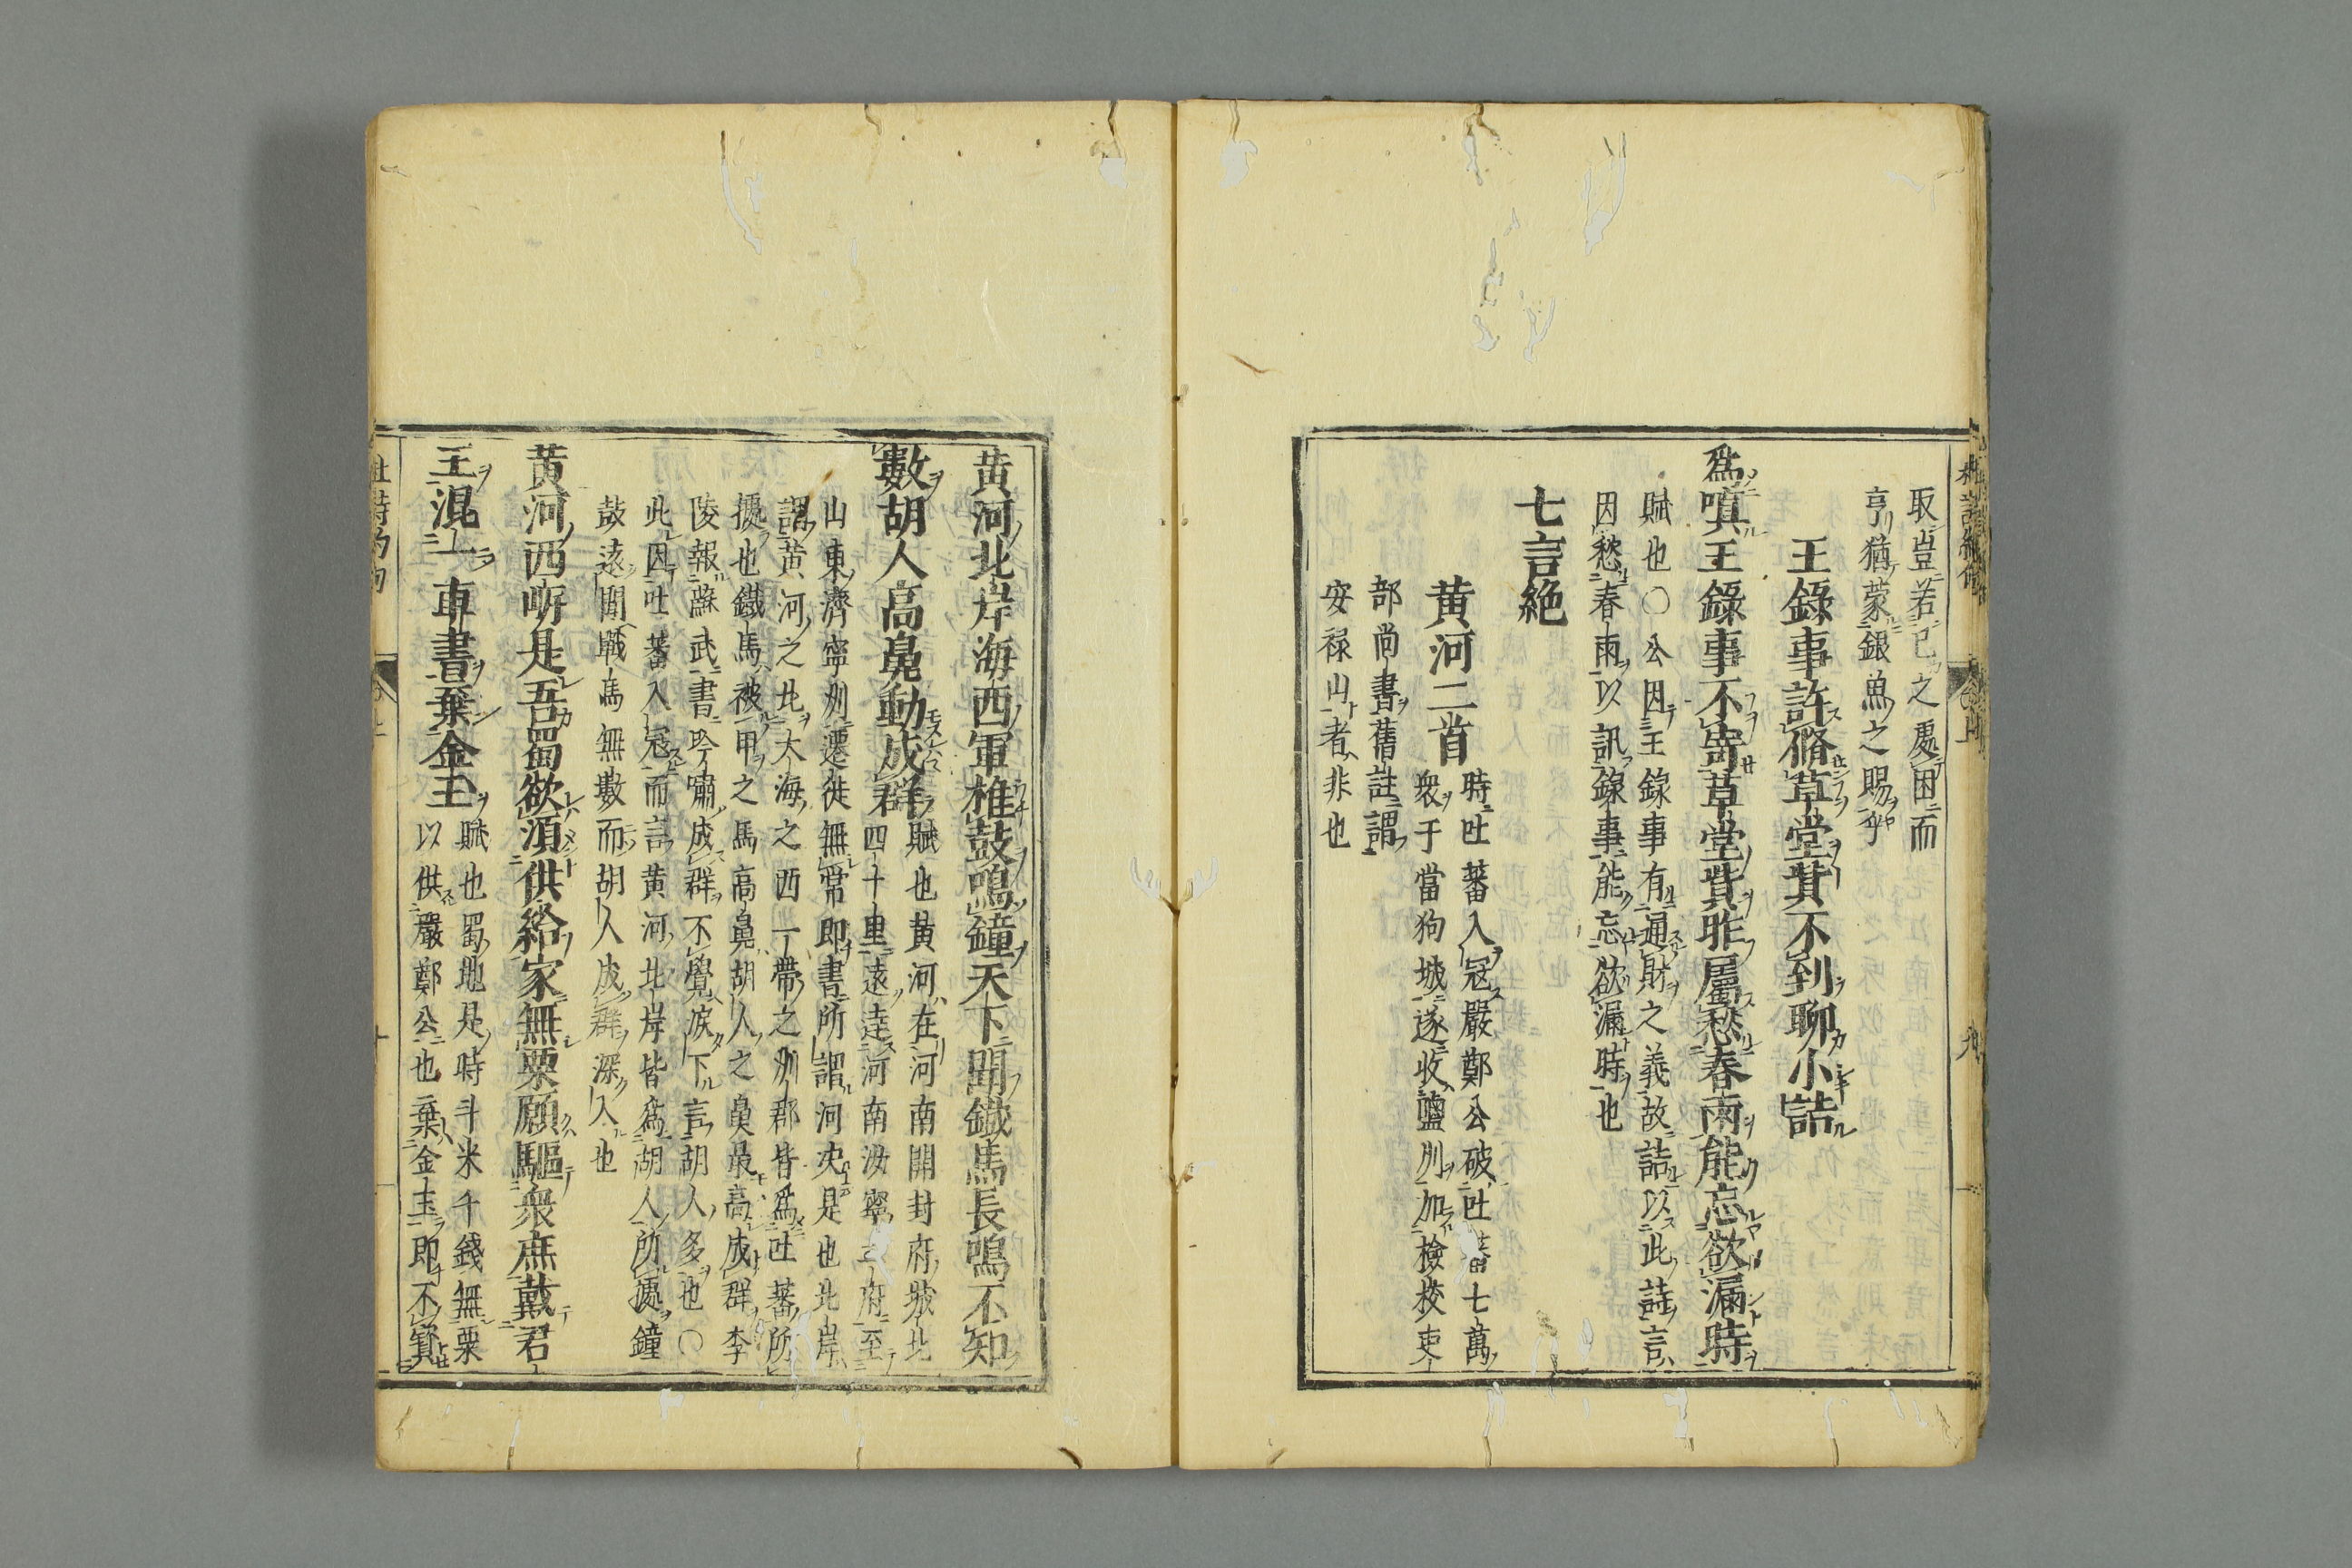 取豈若己之處困而
亨猶蒙銀魚之賜乎
王錄事許脩草堂貲不到聊小詰
爲嗔王錄事不寄草堂貲昨屬愁春雨能忘欲漏時
賦也○公因王錄事有通財之義故詰以此詩言
因愁春雨以訊錄事能忘欲漏時也
七言絶
黄河二首
時吐蕃入寇嚴鄭公破吐蕃七萬
衆于當狗城遂收鹽川加檢校吏
部尚書舊註謂
安禄山者非也
黄河北岸海西軍椎鼓鳴鐘天下聞鐵馬長鳴不知
數胡人高鼻動成群
賦也黄河在河南開封府城北
四十里遠達河南汝寧府至
山東濟寧州遷徙無常即書所謂河決是也北岸
謂黄河之北大海之西一帶之州郡皆爲吐蕃所
據也鐵馬被甲之馬高鼻胡人之鼻最高成群李
陵報蘇武書吟嘯成群不覺淚下言胡人多也○
此因吐蕃入寇而言黄河北岸皆爲胡人所據鐘
鼓遠聞戰馬無數而胡人成群深入也
黄河西岸是吾蜀欲須供給家無粟願驅衆庶戴君
王混一車書棄金玉
賦也蜀地是時斗米千錢無粟
以供嚴鄭公也棄金玉即不寳